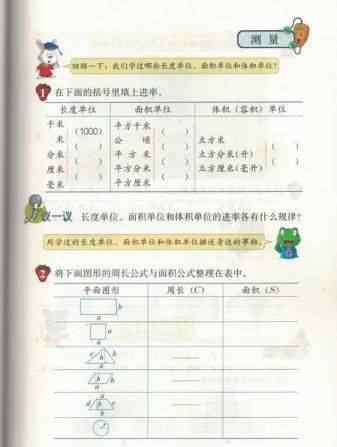 测 量
回顾一下：我们学过哪些长度单位、面积单位和体积单位？
1 在下面的括号里填上进率。
长度单位 面积单位 体积（容积）单位
千米 (1000) 平方千米 ( )
米 ( ) 公 顷 ( ) 立方米 ( )
分米 ( ) 平 方 米 ( ) 立方分米(升) ( )
厘米 ( ) 平方分米 ( ) 立方厘米(毫升)
毫米 平方厘米
议一议 长度单位、面积单位和体积单位的进率各有什么规律？
用学过的长度单位、面积单位和体积单位描述身边的事物。
2 将下面图形的周长公式与面积公式整理在表中。
平面图形 周长（C） 面积（S）
b
a
a
a
c h b
a
h b
a
a
d h c
b
r